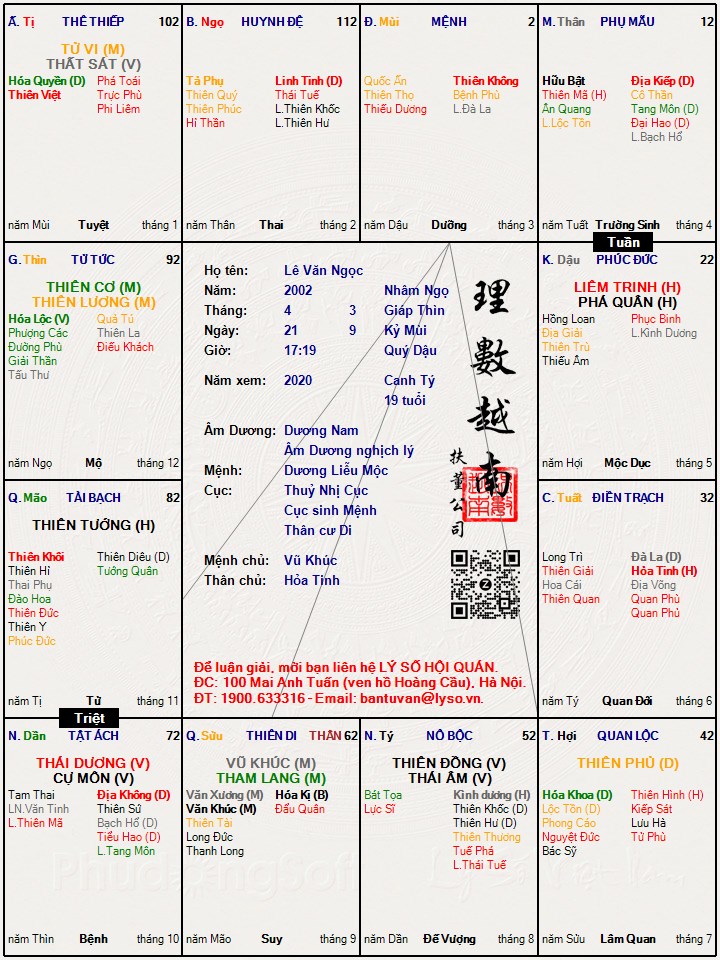 Ấ. Tị THÊ THIẾP 102
TỬ VI (M)
THẤT SÁT (V)
Hóa Quyền (D) Phá Toái
Thiên Việt Trực Phù
Phi Liêm
năm Mùi Tuyệt tháng 1
B. Ngọ HUYNH ĐỆ 112
Tả Phụ Linh Tinh (D)
Thiên Quý Thái Tuế
Thiên Phúc L.Thiên Khốc
Hỉ Thần L.Thiên Hư
năm Thân Thai tháng 2
Đ. Mùi MỆNH 2
Quốc Ấn Thiên Không
Thiên Thọ Bệnh Phù
Thiếu Dương L.Đà La
năm Dậu Dưỡng tháng 3
M. Thân PHỤ MẪU 12
Hữu Bật Địa Kiếp (D)
Thiên Mã (H) Cô Thần
Ân Quang Tang Môn (D)
L.Lộc Tồn Đại Hao (D)
L.Bạch Hổ
năm Tuất Trường Sinh tháng 4
Tuần
G. Thìn TỬ TỨC 92
THIÊN CƠ (M)
THIÊN LƯƠNG (M)
Hóa Lộc (V) Quả Tú
Phượng Các Thiên La
Đường Phù Điếu Khách
Giải Thần
Tấu Thư
năm Ngọ Mộ tháng 12
Họ tên: Lê Văn Ngọc
Năm: 2002 Nhâm Ngọ
Tháng: 4 3 Giáp Thìn
Ngày: 21 9 Kỷ Mùi
Giờ: 17:19 Quý Dậu
Năm xem: 2020 Canh Tý
19 tuổi
Âm Dương: Dương Nam
Âm Dương nghịch lý
Mệnh: Dương Liễu Mộc
Cục: Thuỷ Nhị Cục
Cục sinh Mệnh
Thân cư Di
Mệnh chủ: Vũ Khúc
Thân chủ: Hỏa Tinh
理數越南
扶董公司
Để luận giải, mời bạn liên hệ LÝ SỐ HỘI QUÁN.
ĐC: 100 Mai Anh Tuấn (ven hồ Hoàng Cầu), Hà Nội.
ĐT: 1900.633316 - Email: bantuvan@lyso.vn.
K. Dậu PHÚC ĐỨC 22
LIÊM TRINH (H)
PHÁ QUÂN (H)
Hồng Loan Phục Binh
Địa Giải L.Kình Dương
Thiên Trù
Thiếu Âm
năm Hợi Mộc Dục tháng 5
Q. Mão TÀI BẠCH 82
THIÊN TƯỚNG (H)
Thiên Khôi Thiên Diêu (D)
Thiên Hỉ Tướng Quân
Thai Phụ
Đào Hoa
Thiên Đức
Thiên Y
Phúc Đức
năm Tị Tử tháng 11
Triệt
C. Tuất ĐIỀN TRẠCH 32
Long Trì Đà La (D)
Thiên Giải Hỏa Tinh (H)
Hoa Cái Địa Võng
Thiên Quan Quan Phù
Quan Phủ
năm Tý Quan Đới tháng 6
N. Dần TẬT ÁCH 72
THÁI DƯƠNG (V)
CỰ MÔN (V)
Tam Thai Địa Không (D)
LN.Văn Tinh Thiên Sứ
L.Thiên Mã Bạch Hổ (D)
Tiểu Hao (D)
L.Tang Môn
năm Thìn Bệnh tháng 10
Q. Sửu THIÊN DI THÂN 62
VŨ KHÚC (M)
THAM LANG (M)
Văn Xương (M) Hóa Kị (B)
Văn Khúc (M) Đẩu Quân
Thiên Tài
Long Đức
Thanh Long
năm Mão Suy tháng 9
N. Tý NÔ BỘC 52
THIÊN ĐỒNG (V)
THÁI ÂM (V)
Bát Tọa Kình dương (H)
Lực Sĩ Thiên Khốc (D)
Thiên Hư (D)
Thiên Thương
Tuế Phá
L.Thái Tuế
năm Dần Đế Vượng tháng 8
T. Hợi QUAN LỘC 42
THIÊN PHỦ (D)
Hóa Khoa (D) Thiên Hình (H)
Lộc Tồn (D) Kiếp Sát
Phong Cáo Lưu Hà
Nguyệt Đức Tử Phù
Bác Sỹ
năm Sửu Lâm Quan tháng 7